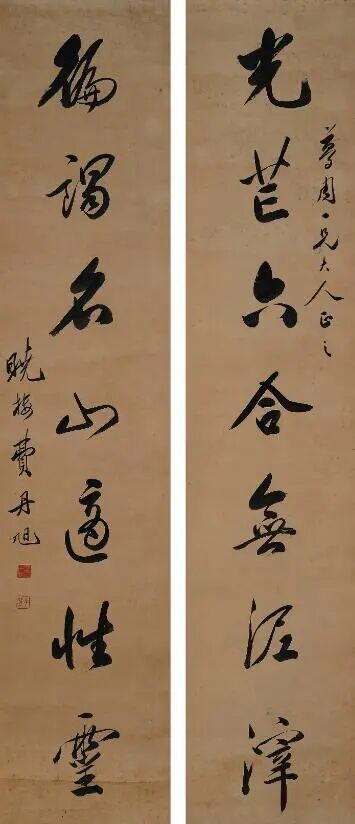 光芒六合無泥滓
蓴周一兄大人正之
徧謁名山適性靈
曉樓費丹旭